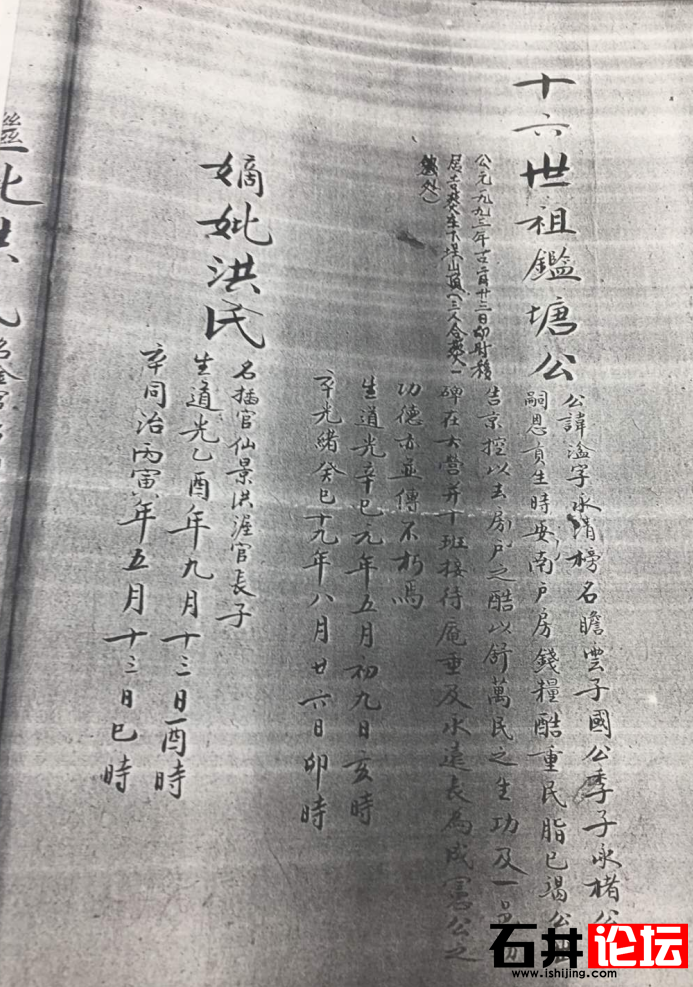 十六世祖鑑塘公
公諱溢字永清榜名瞻雲子國公季子永楮公
嗣恩貢生時安南戶房錢糧酷重民脂已竭公
告京控以去房戶之酷以舒萬民之生功及一邑
碑在大營并十班接待庵重及水遠長為成憲公之
功德亦並傳不朽焉
生道光辛巳元年五月初九日亥時
卒光緒癸巳十九年八月廿六日卯時
公元一九九三年十二月廿三日卯時移
居吉葬在下 山頂(三人合葬一
處)
嫡妣洪氏
名插官仙景洪渥官長子
生道光乙酉年九月十三日酉時
卒同治丙寅年五月十三日巳時
繼妣洪氏
石井论坛
www.ishijing.com